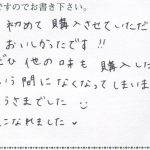 ですのでお書き下さい。
初めて購入させていただ
おいしかったです!!
ひ他の味も購入した
う間になくなってしまいま
うさまでした
になれました